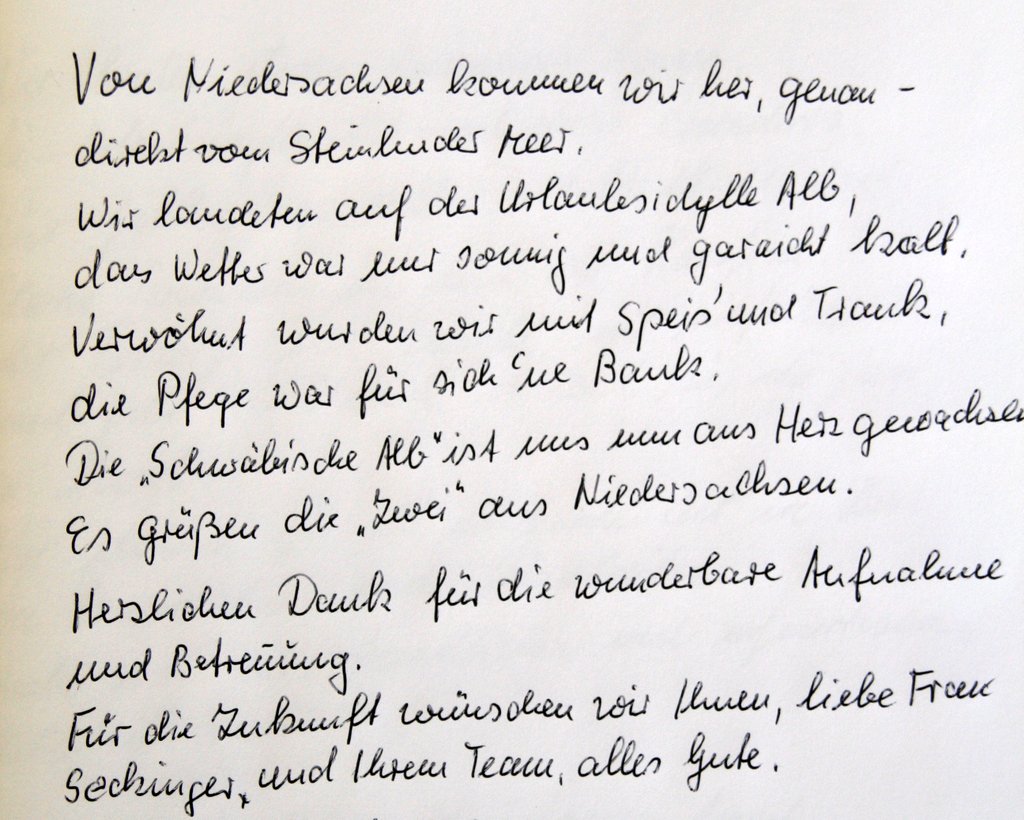 Von Niedersachsen kommen wir her, genau -
direkt vom Steinhuder Meer.
Wir landeten auf der Urlaubsidylle Alb,
das Wetter war nur sonnig und garnicht kalt.
Verwöhnt wurden wir mit Speis' und Trank,
die Pfege war für sich 'ne Bank.
Die „Schwäbische Alb“ ist uns nun ans Herz gewachsen
Es grüßen die „Zwei“ aus Niedersachsen.
Herzlichen Dank für die wunderbare Aufnahme
und Betreuung.
Für die Zukunft wünschen wir Ihnen, liebe Frau
Seckinger, und Ihrem Team, alles Gute.